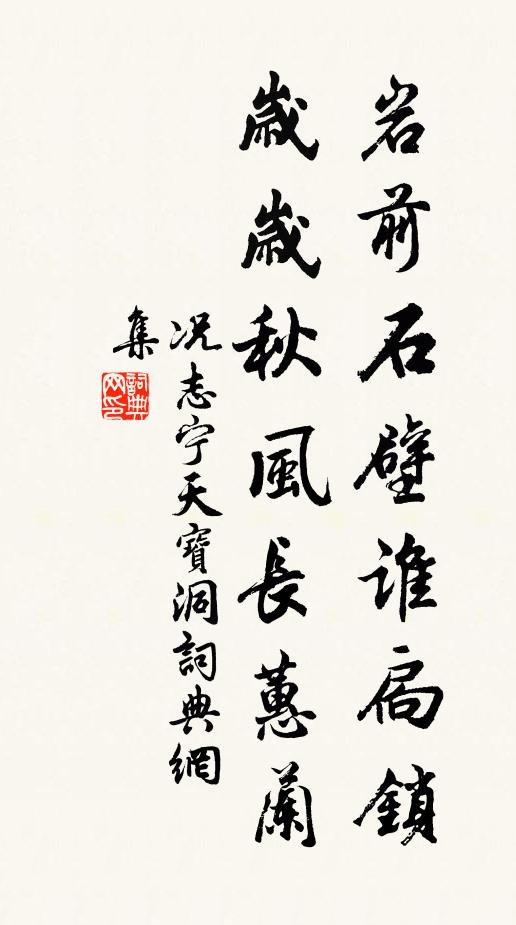 岩前石壁谁扃鎖
歲歲秋風長蕙蘭
况志宁天寶洞詞典網
集
詞典
网印